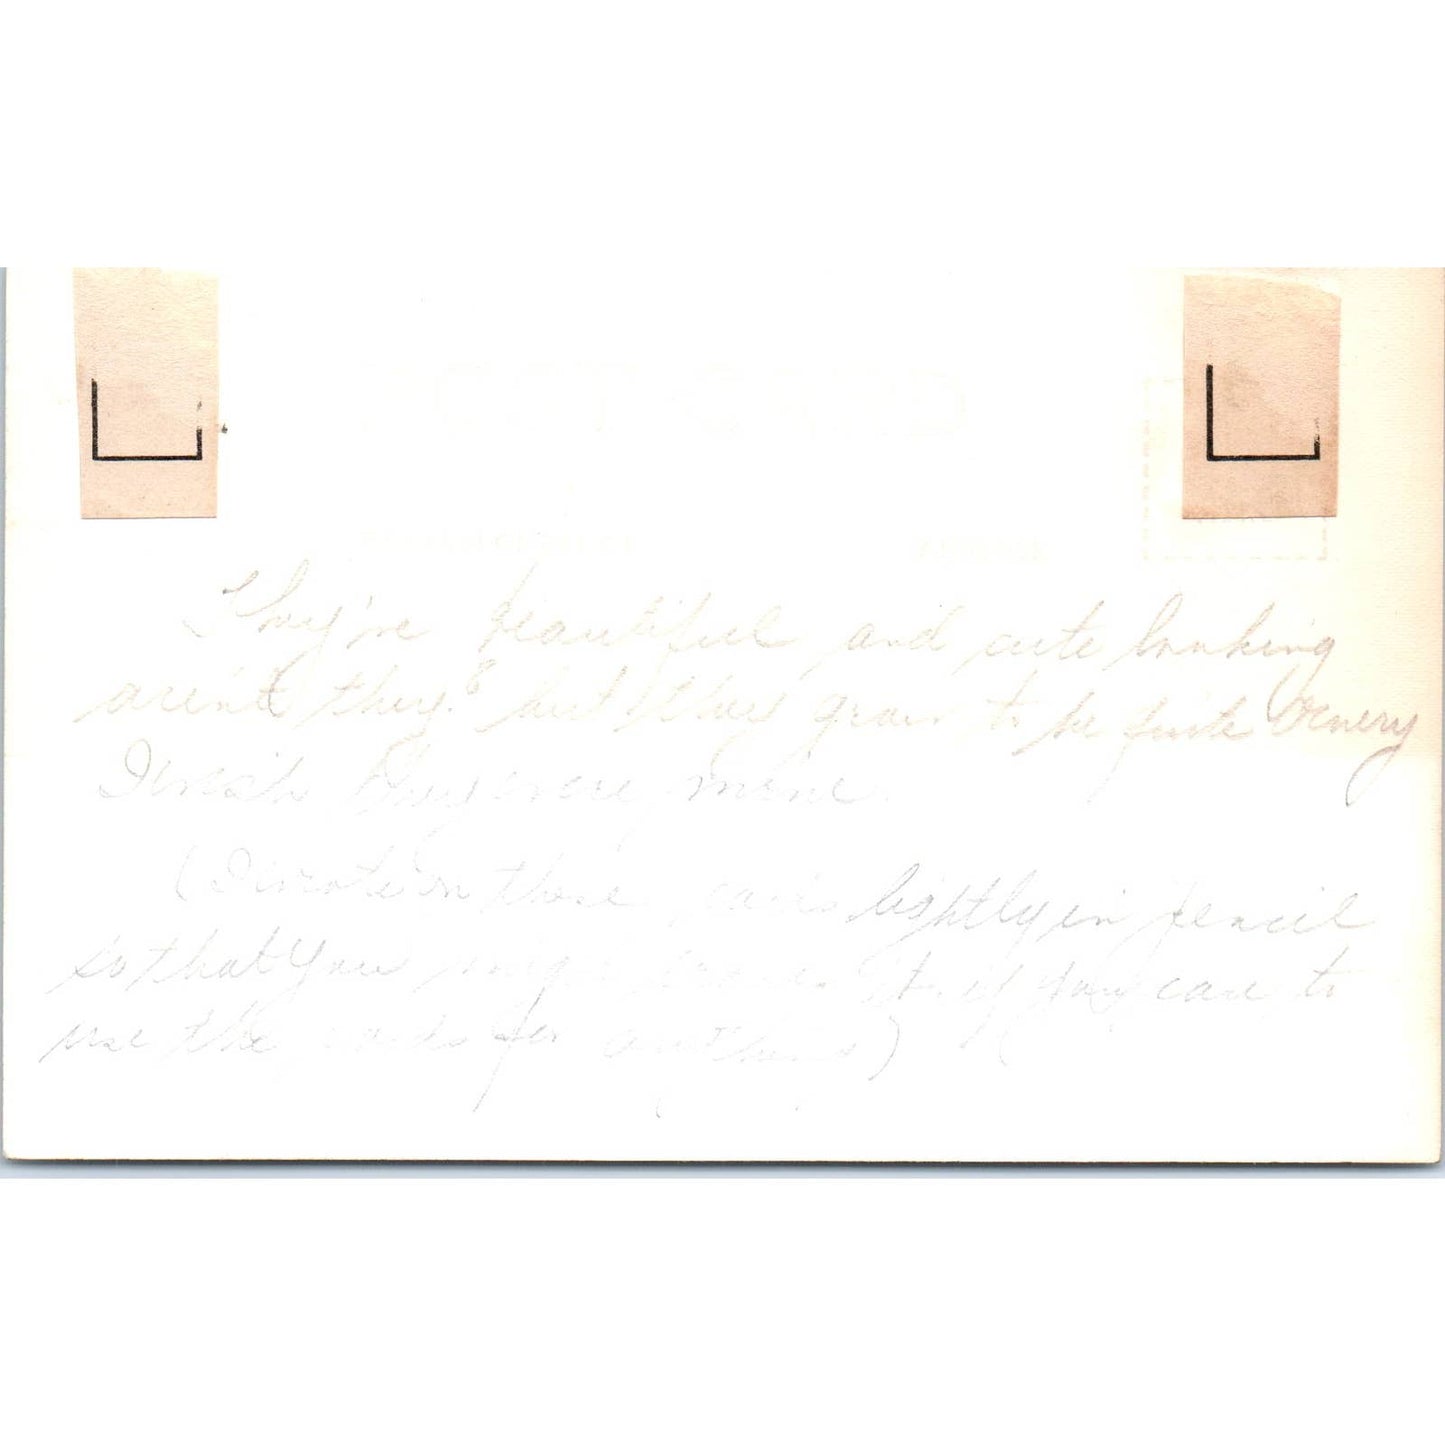 POST CARD
CORRESPONDENCE ADDRESS
They're beautiful and cute looking
aren't they? but they grow to be quite Ornery
I wish they were mine.
(I wrote on these cards lightly in pencil
so that you might erase it if you care to
use the cards for anything)